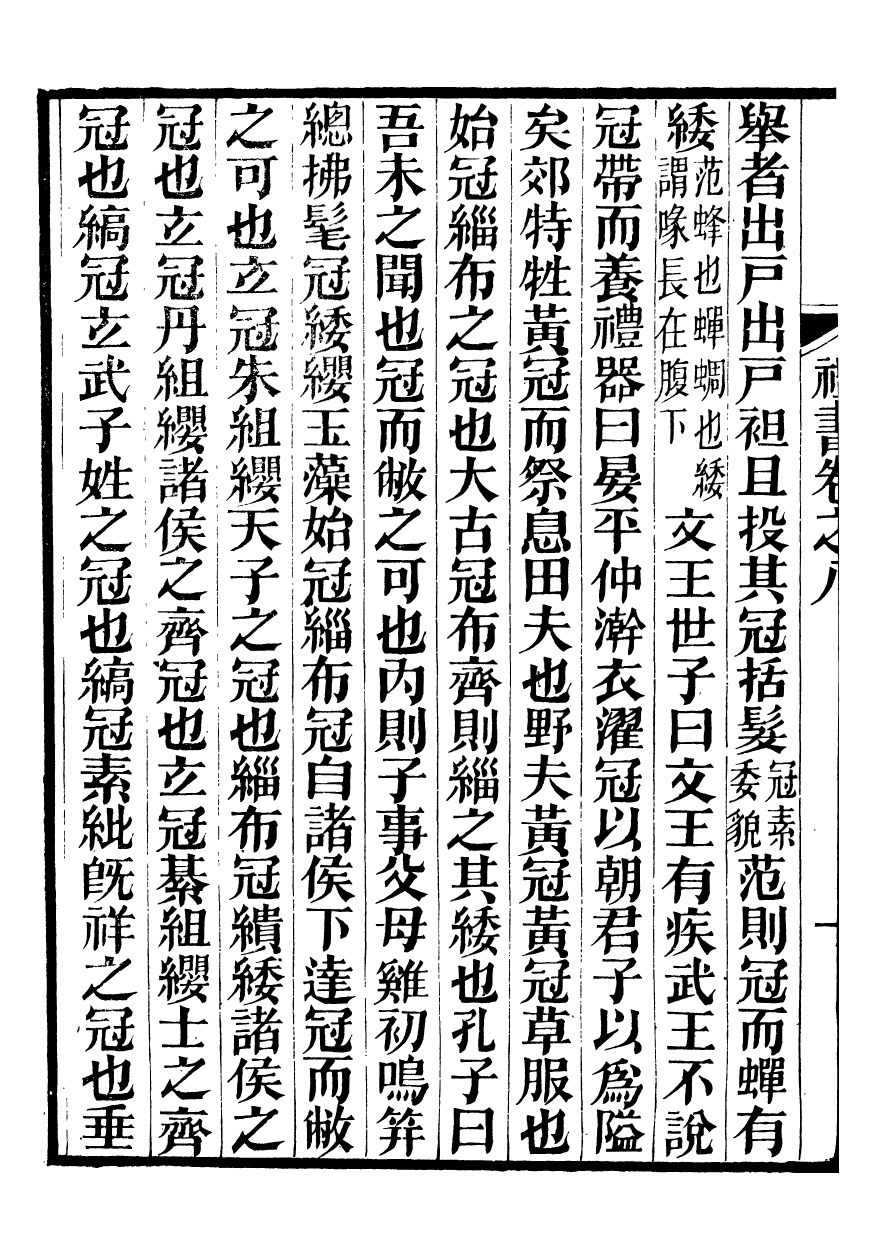 禮書卷之八 一
舉者出戸出戸袒且投其冠括髮冠素委貌范則冠而蟬有
緌范蜂也蟬蜩也緌謂喙長在腹下文王世子曰文王有疾武王不說
冠帶而養禮器曰晏平仲澣衣濯冠以朝君子以爲隘
矣郊特牲黃冠而祭息田夫也野夫黃冠黃冠草服也
始冠緇布之冠也大古冠布齊則緇之其緌也孔子曰
吾未之聞也冠而敝之可也内則子事父母雞初鳴笄
總拂髦冠緌纓玉藻始冠緇布冠自諸侯下達冠而敝
之可也玄冠朱組纓天子之冠也緇布冠繢緌諸侯之
冠也玄冠丹組纓諸侯之齊冠也玄冠綦組纓士之齊
冠也縞冠玄武子姓之冠也縞冠素紕旣祥之冠也垂